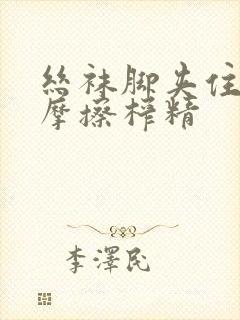 絲袜脚夹住
摩擦榨精
李澤民